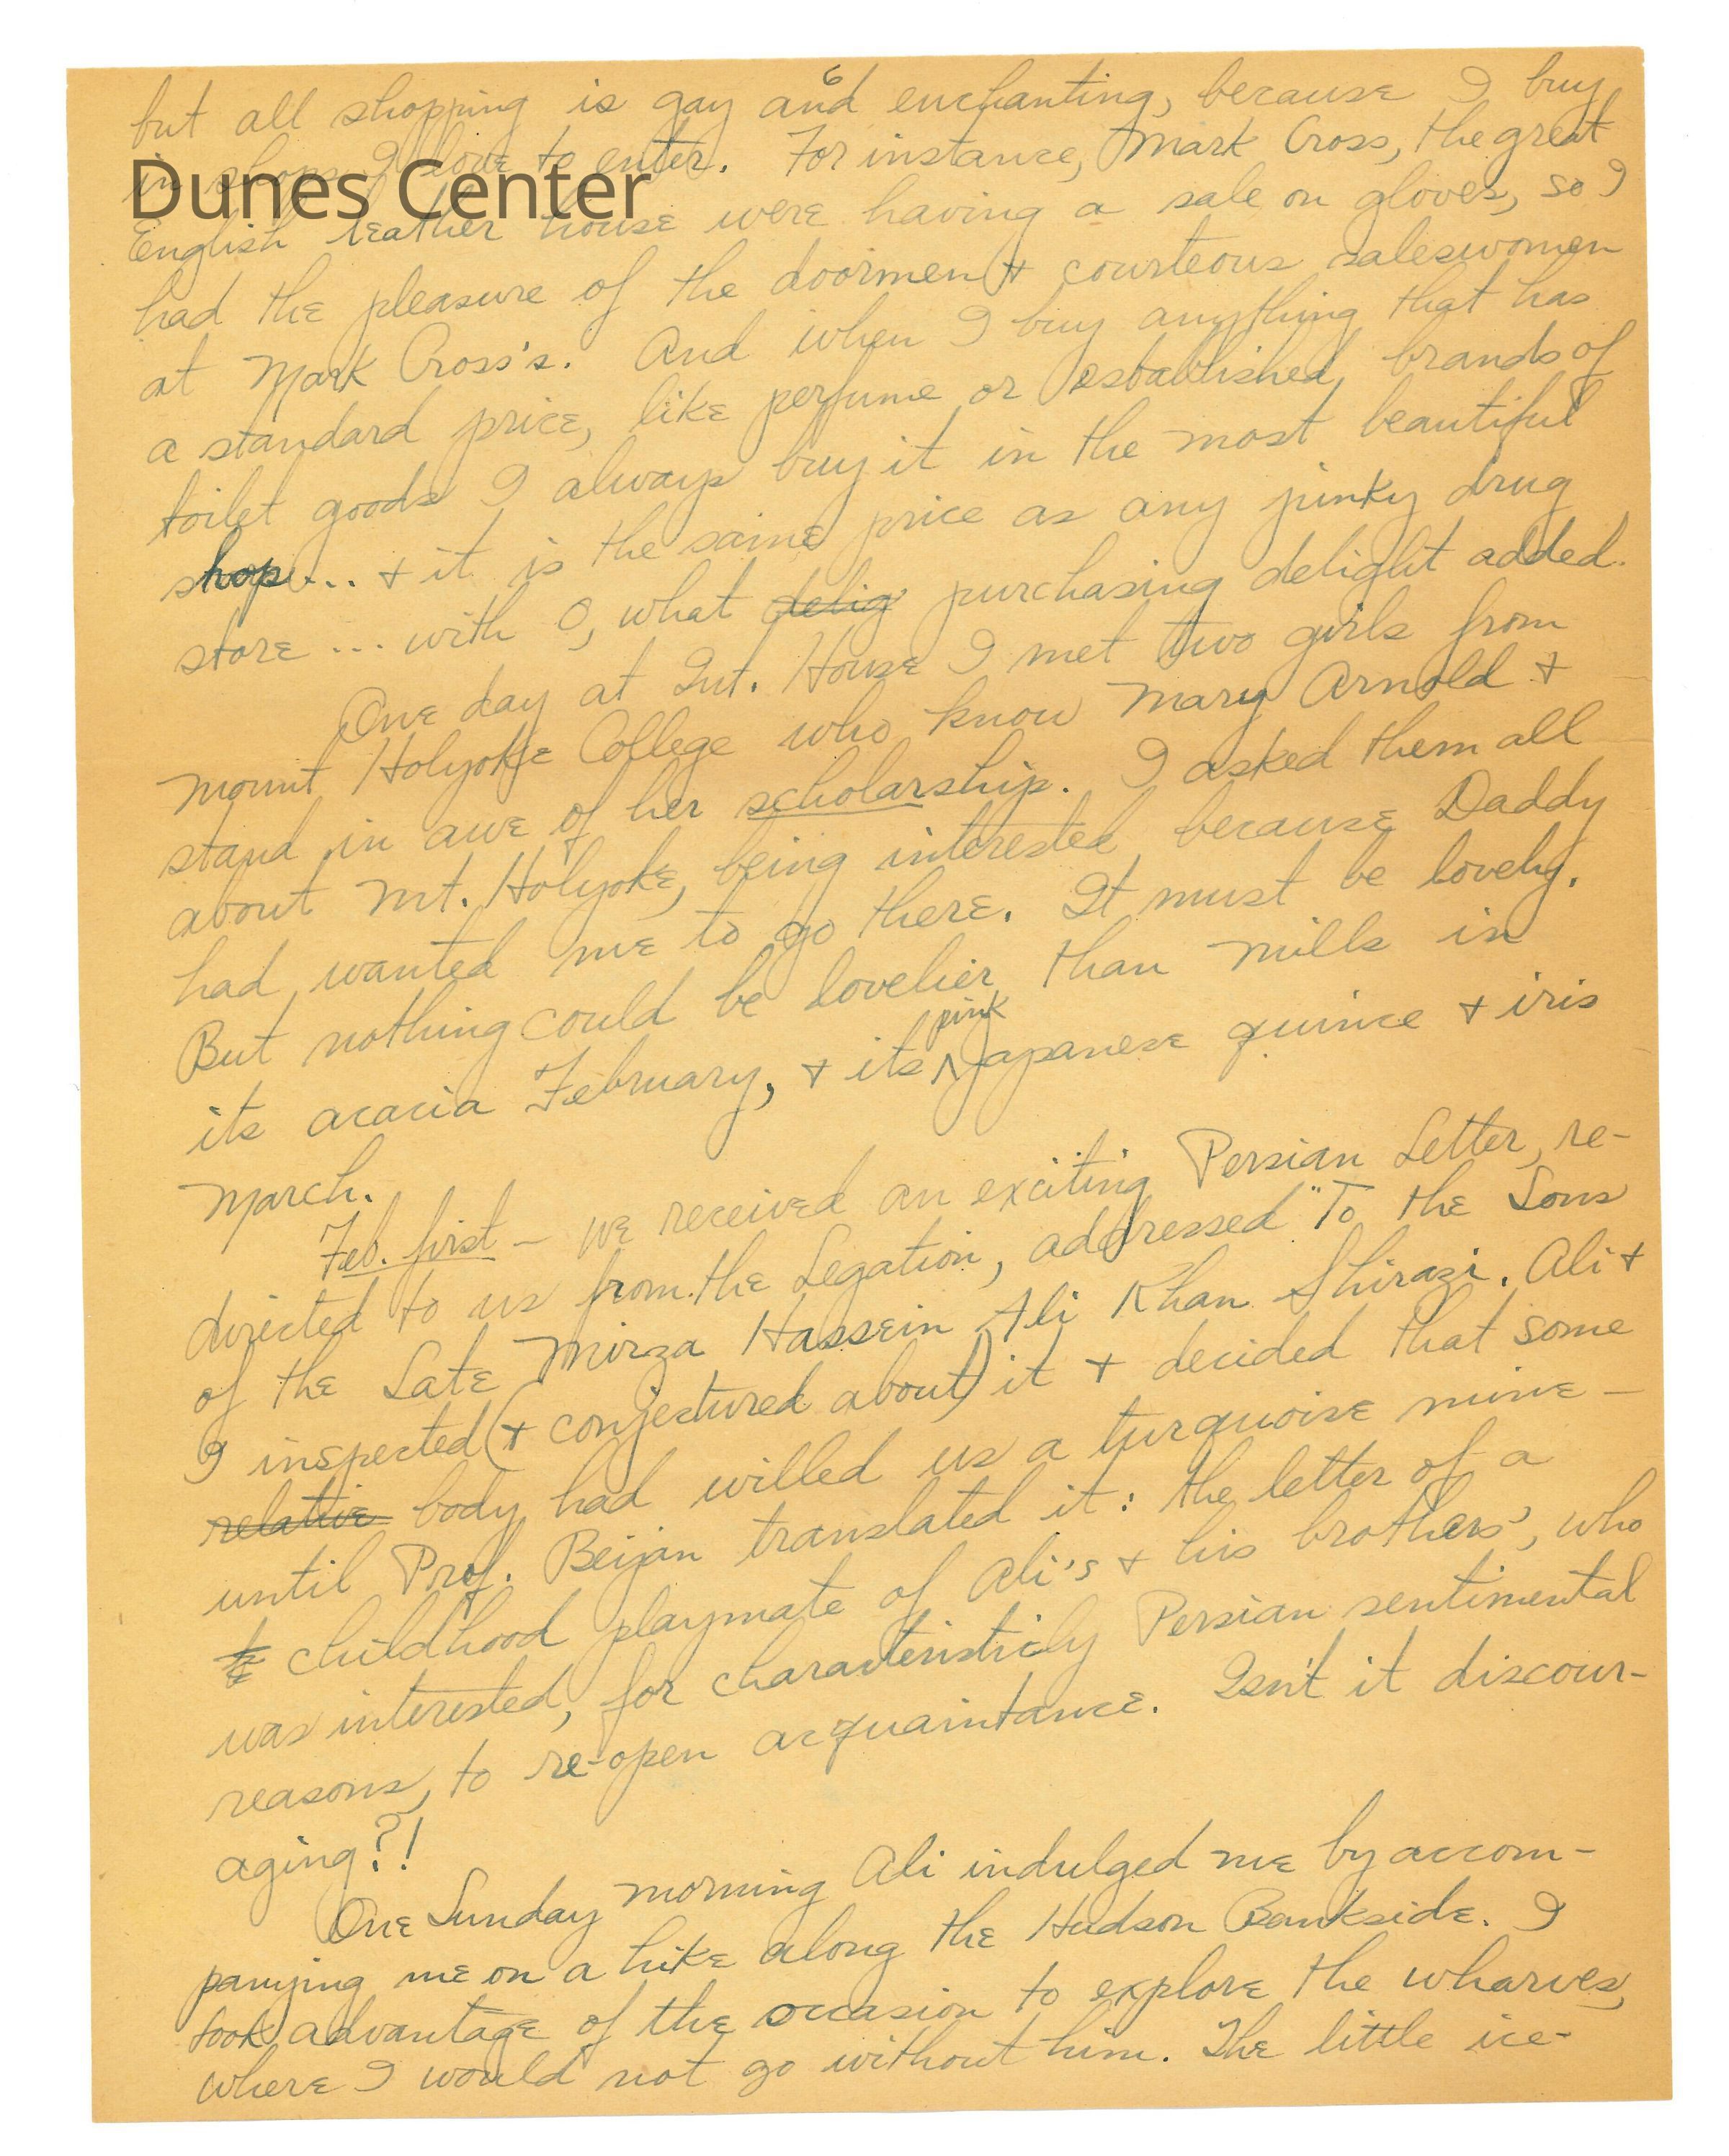 6
but all shopping is gay and enchanting, because I buy
in shops I love to enter. For instance, Mark Cross, the great
Dunes Center
English leather house were having a sale on gloves, so I
had the pleasure of the doormen & courteous saleswomen
at Mark Cross's. And when I buy anything that has
a standard price, like perfume or established brands of
toilet goods I always buy it in the most beautiful
shop... & it is the same price as any junky drug
store ... with O, what delig purchasing delight added.
One day at Int. House I met two girls from
Mount Holyoke College who know Mary Arnold &
stand in awe of her scholarship. I asked them all
about Mt. Holyoke, being interested because Daddy
had wanted me to go there. It must be lovely.
But nothing could be lovelier than Mills in
its acacia February, & its pink Japanese quince & iris
March.
Feb. first - we received an exciting Persian Letter, re-
directed to us from the Legation, addressed "To the Sons
of the Late Mirza Hassein Ali Khan Shirazi. Ali &
I inspected (& conjectured about) it & decided that some
relative body had willed us a turquoise mine -
until Prof. Beijan translated it: the letter of a
childhood playmate of Ali's & his brothers', who
was interested, for characteristicly Persian sentimental
reasons, to re-open acquaintance. Isn't it discour-
aging?!
One Sunday morning Ali indulged me by accom-
panying me on a hike along the Hudson Bankside. I
took advantage of the occasion to explore the wharves,
where I would not go without him. The little ice-